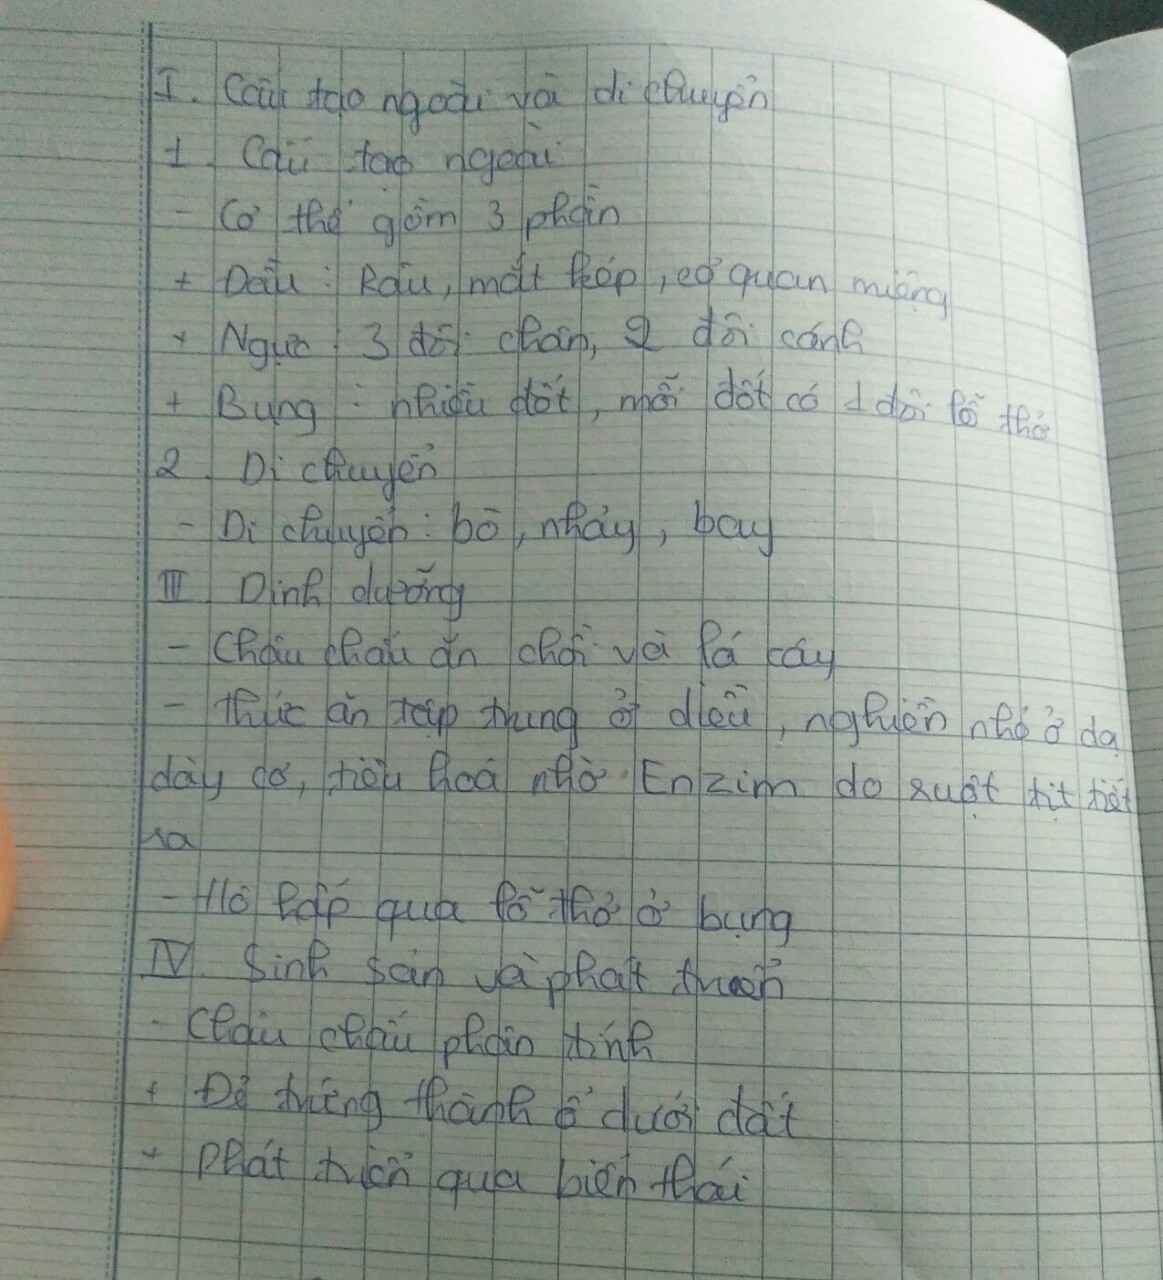 I. Cấu tạo ngoài và di chuyển
1. Cấu tạo ngoài
- Cơ thể gồm 3 phần
+ Đầu: Râu, mắt kép, cơ quan miệng
+ Ngực: 3 đôi chân, 2 đôi cánh
+ Bụng: nhiều đốt, mỗi đốt có 1 đôi lỗ thở
2. Di chuyển
- Di chuyển: bò, nhảy, bay
III Dinh dưỡng
- Châu chấu ăn chồi và lá cây
- Thức ăn tập trung ở diều, nghiền nhỏ ở dạ
dày cơ, tiêu hoá nhờ Enzim do ruột tịt tiết
ra
- Hô hấp qua lỗ thở ở bụng
IV. Sinh sản và phát triển
- Châu chấu phân tính
+ Đẻ trứng thành ổ dưới đất
+ Phát triển qua biến thái